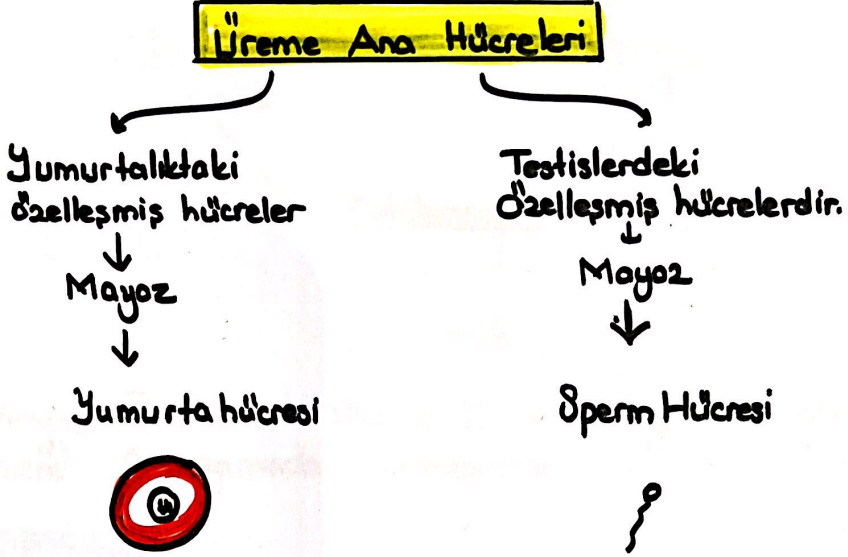 Üreme Ana Hücreleri
Yumurtalıktaki
özelleşmiş hücreler
Mayoz
Yumurta hücresi
Testislerdeki
Özelleşmiş hücrelerdir.
Mayoz
Sperm Hücresi